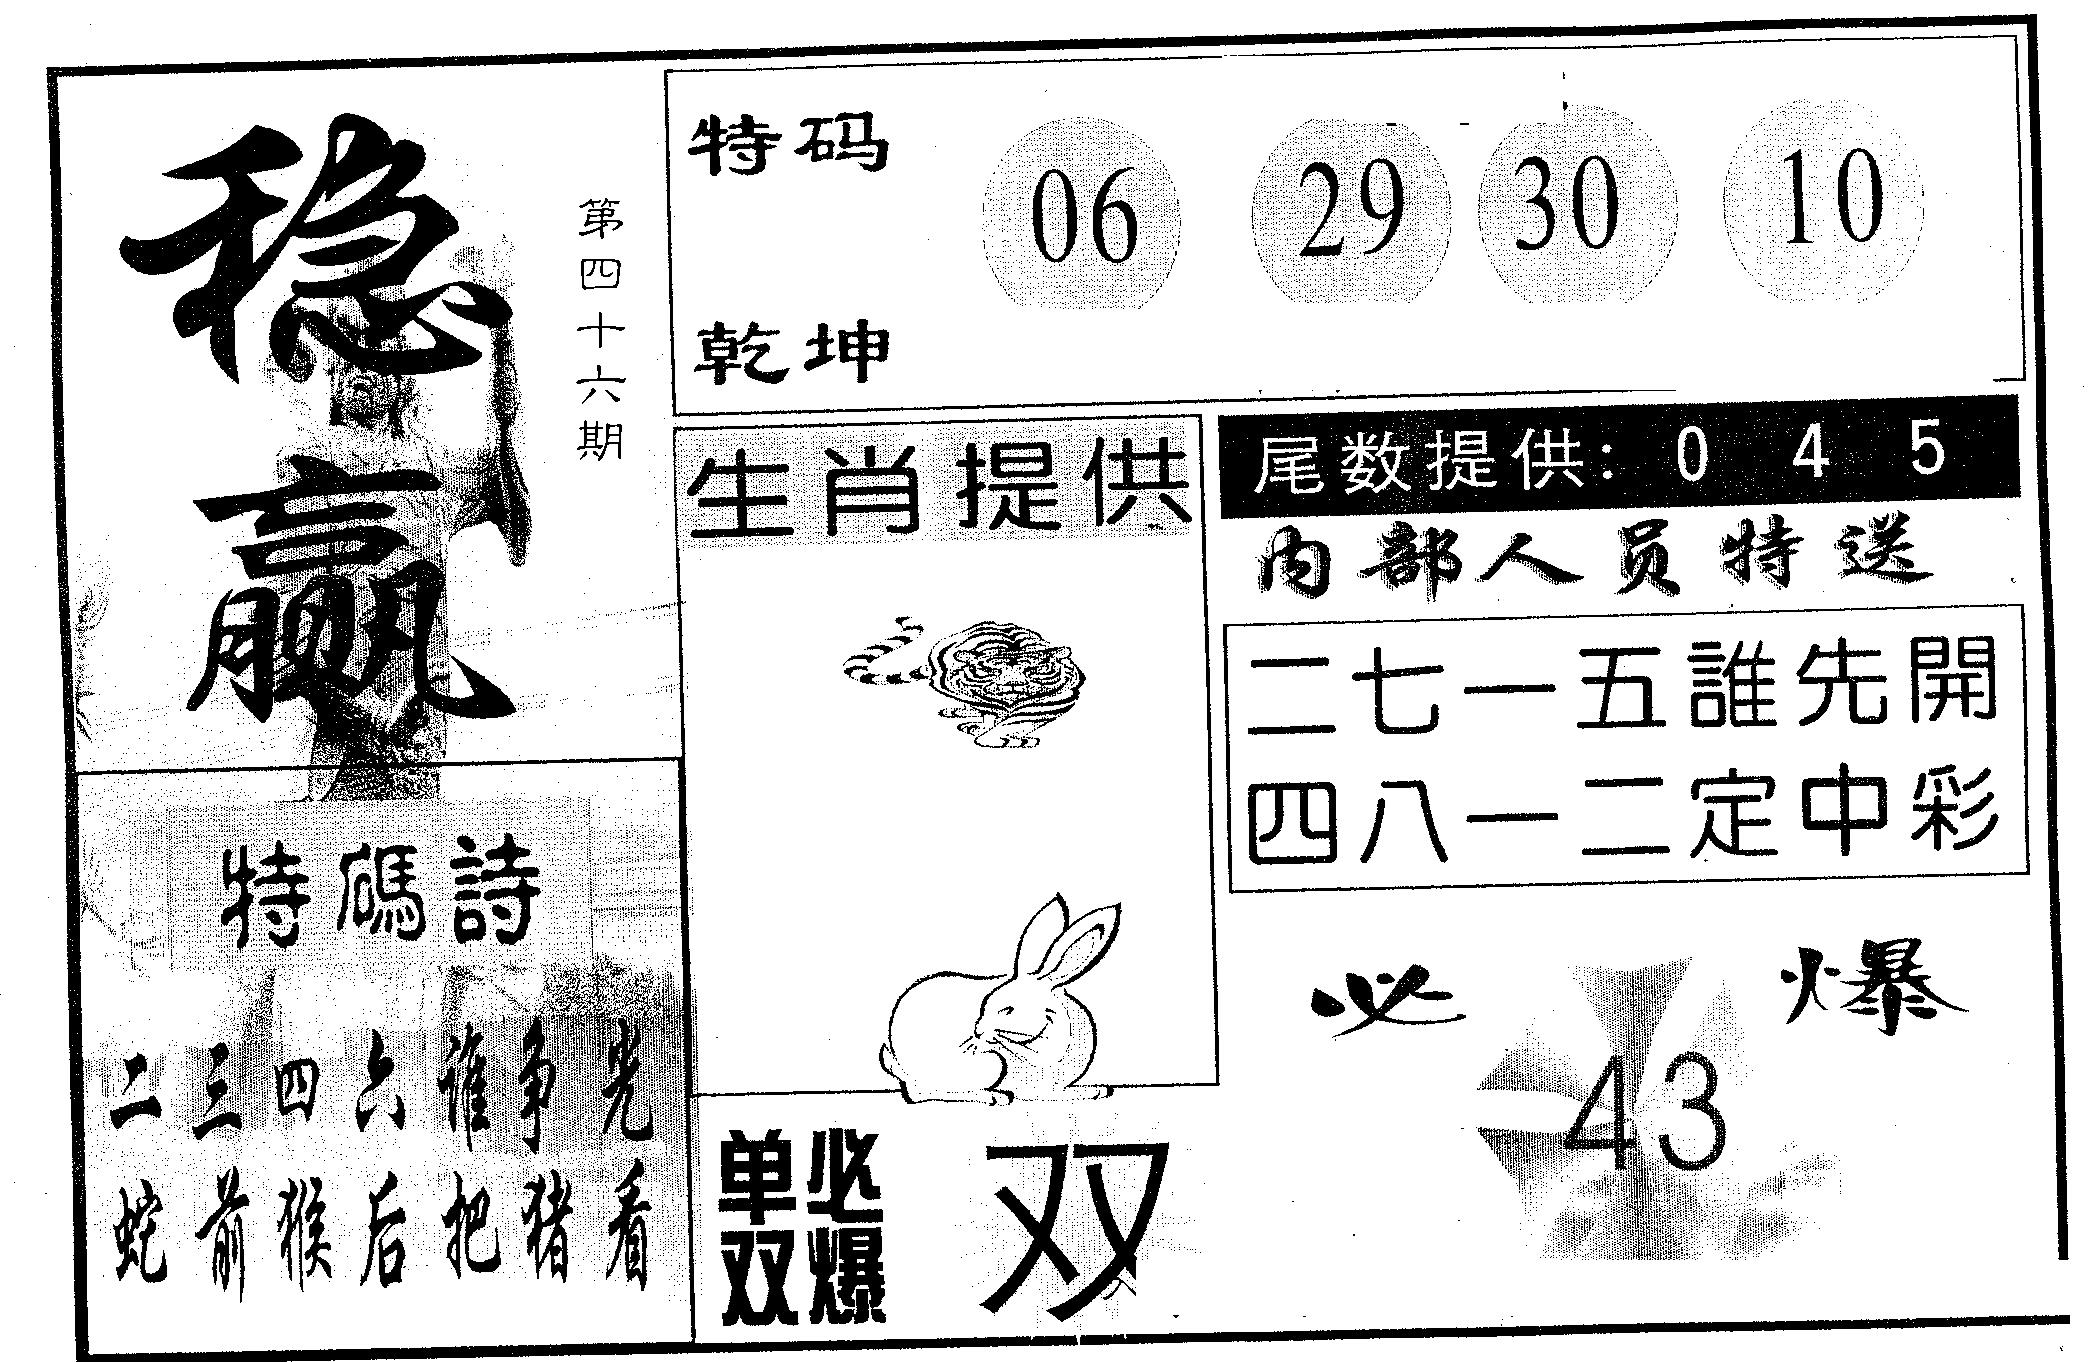 稳赢
第四十六期
特码
06 29 30 10
乾坤
生肖提供
尾数提供：0 4 5
内部人员特送
二七一五誰先開
四八一二定中彩
特碼詩
二三四六谁争先
蛇前猴后把猪看
单双必爆
双
必爆
43